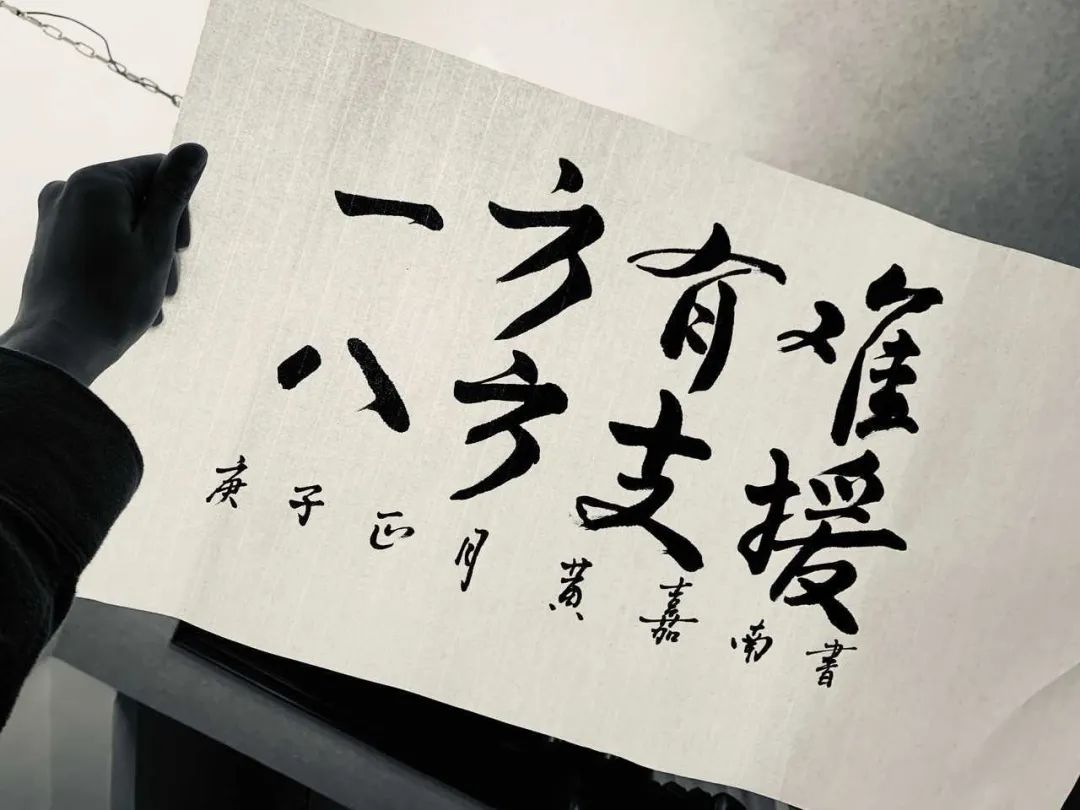 一方有难
八方支援
庚子正月黄嘉南书